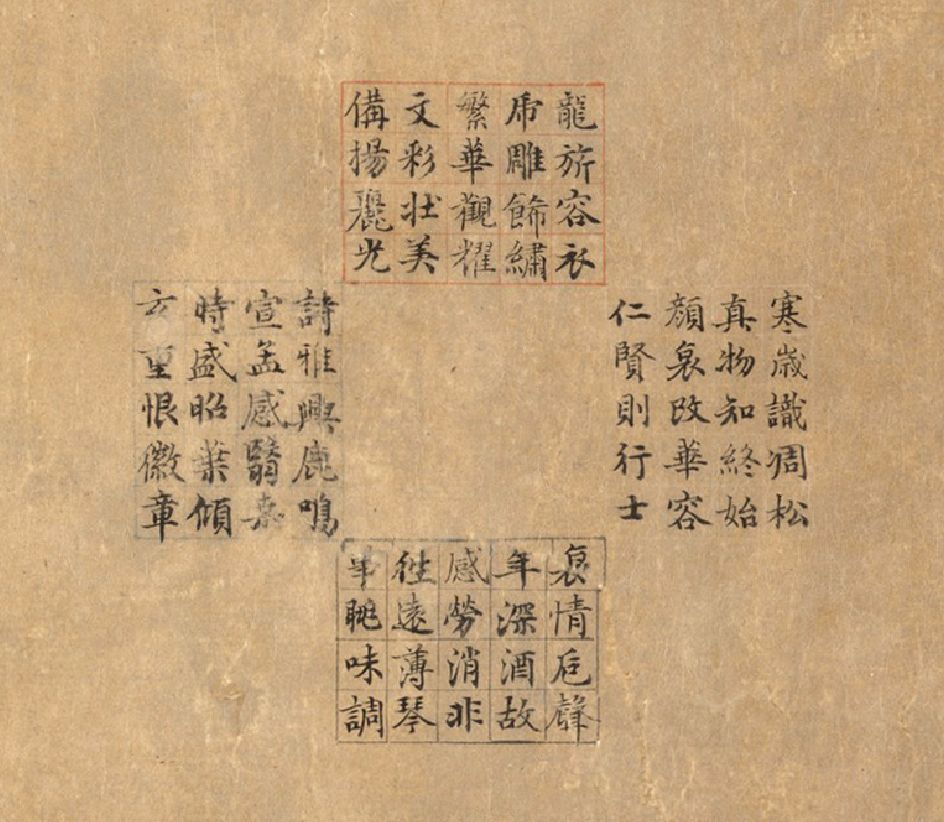 龍旂容衣
虎雕飾繡
繁華觀耀
文彩壯美
備揚麗光
寒歲識凋松
真物知終始
顏哀改華容
仁賢則行士
詩雅興鹿鳴
宣孟感翳桑
時盛昭業傾
玄重恨徽章
哀情卮聲
年深酒故
感勞消非
往遠薄琴
味調